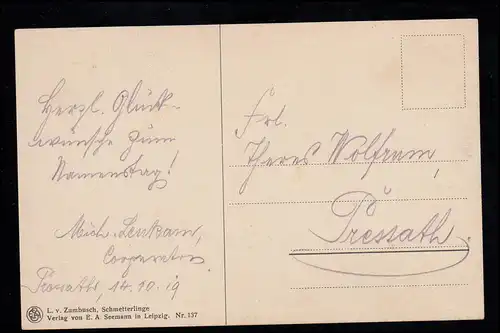 Herzl. Glück-
wünsche zum
Namenstag!
Mich. 
Cooperator
Pressath, 14.10.19
Frl.
Theres Wolfrum,
Pressath.
L. v. Zumbusch, Schmetterlinge
Verlag von E. A. Seemann in Leipzig. Nr. 137